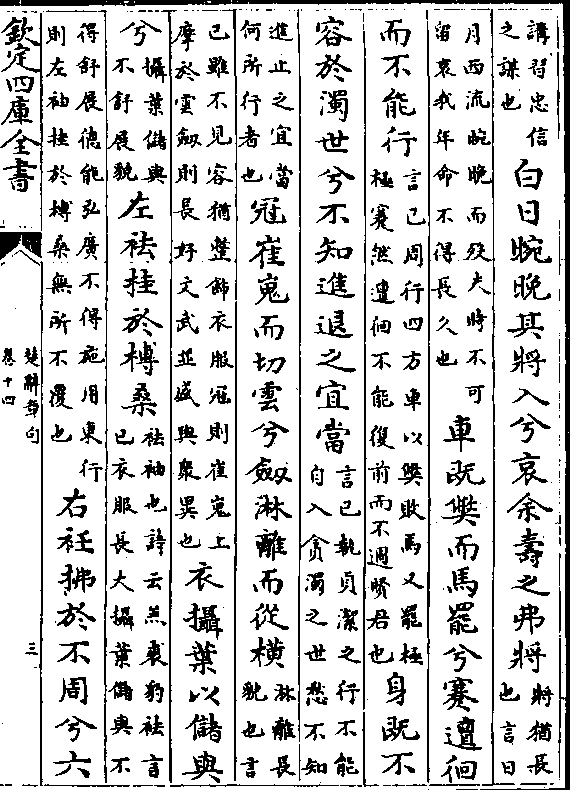 講習忠信
之謀也
白日晼晚其將入兮哀余壽之弗將
將猶長
也言日
月西流晼晚而歿天時不可
留哀我年命不得長久也
車既弊而馬罷兮蹇邅徊
而不能行
言已周行四方車以弊敗馬又罷極
極蹇然邅徊不能復前而不遇賢君也
身既不
容於濁世兮不知進退之宜當
言已執貞潔之行不能
自入貪濁之世愁不知
進止之宜當
何所行者也
冠崔嵬而切雲兮劔淋離而從橫
淋離長
貌也言
已雖不見容猶整飾衣服冠則崔嵬上
摩於雲劔則長好文武並盛與衆異也
衣攝葉以儲與
兮
攝葉儲與
不舒展貌
左袪挂於榑桑
袪袖也詩云羔裘豹袪言
已衣服長大攝葉儲與不
得舒展德能弘廣不得施用東行
則左袖挂於榑桑無所不覆也
右衽拂於不周兮六
欽定四庫全書
楚辭章句
卷十四
三